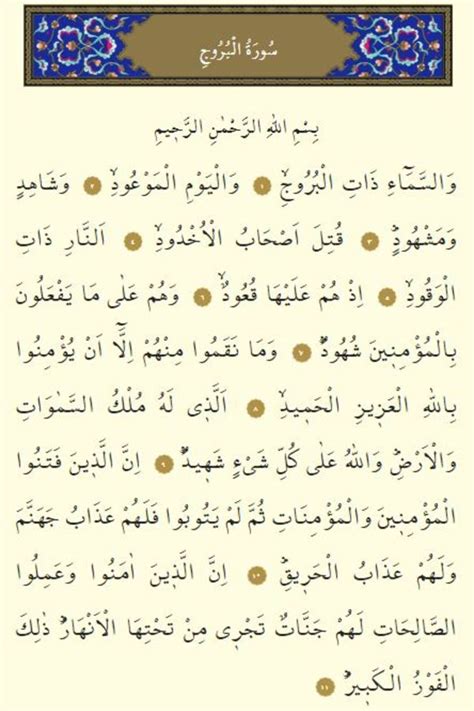 سُورَةُ الْبُرُوجِ
بِسْمِ اللهِ الرَّحْمٰنِ الرَّح۪يمِ
وَالسَّمَٓاءِ ذَاتِ الْبُرُوجِۙ ١ وَالْيَوْمِ الْمَوْعُودِۙ ٢ وَشَاهِدٍ
وَمَشْهُودٍۜ ٣ قُتِلَ اَصْحَابُ الْاُخْدُودِۙ ٤ اَلنَّارِ ذَاتِ
الْوَقُودِۙ ٥ اِذْ هُمْ عَلَيْهَا قُعُودٌۙ ٦ وَهُمْ عَلٰى مَا يَفْعَلُونَ
بِالْمُؤْمِن۪ينَ شُهُودٌۜ ٧ وَمَا نَقَمُوا مِنْهُمْ اِلَّٓا اَنْ يُؤْمِنُوا
بِاللهِ الْعَز۪يزِ الْحَم۪يدِۙ ٨ اَلَّذ۪ي لَهُ مُلْكُ السَّمٰوَاتِ
وَالْاَرْضِۜ وَاللهُ عَلٰى كُلِّ شَيْءٍ شَه۪يدٌۜ ٩ اِنَّ الَّذ۪ينَ فَتَنُوا
الْمُؤْمِن۪ينَ وَالْمُؤْمِنَاتِ ثُمَّ لَمْ يَتُوبُوا فَلَهُمْ عَذَابُ جَهَنَّمَ
وَلَهُمْ عَذَابُ الْحَر۪يقِۜ ١٠ اِنَّ الَّذ۪ينَ اٰمَنُوا وَعَمِلُوا
الصَّالِحَاتِ لَهُمْ جَنَّاتٌ تَجْر۪ي مِنْ تَحْتِهَا الْاَنْهَارُۜ ذٰلِكَ
الْفَوْزُ الْكَب۪يرُۜ ١١